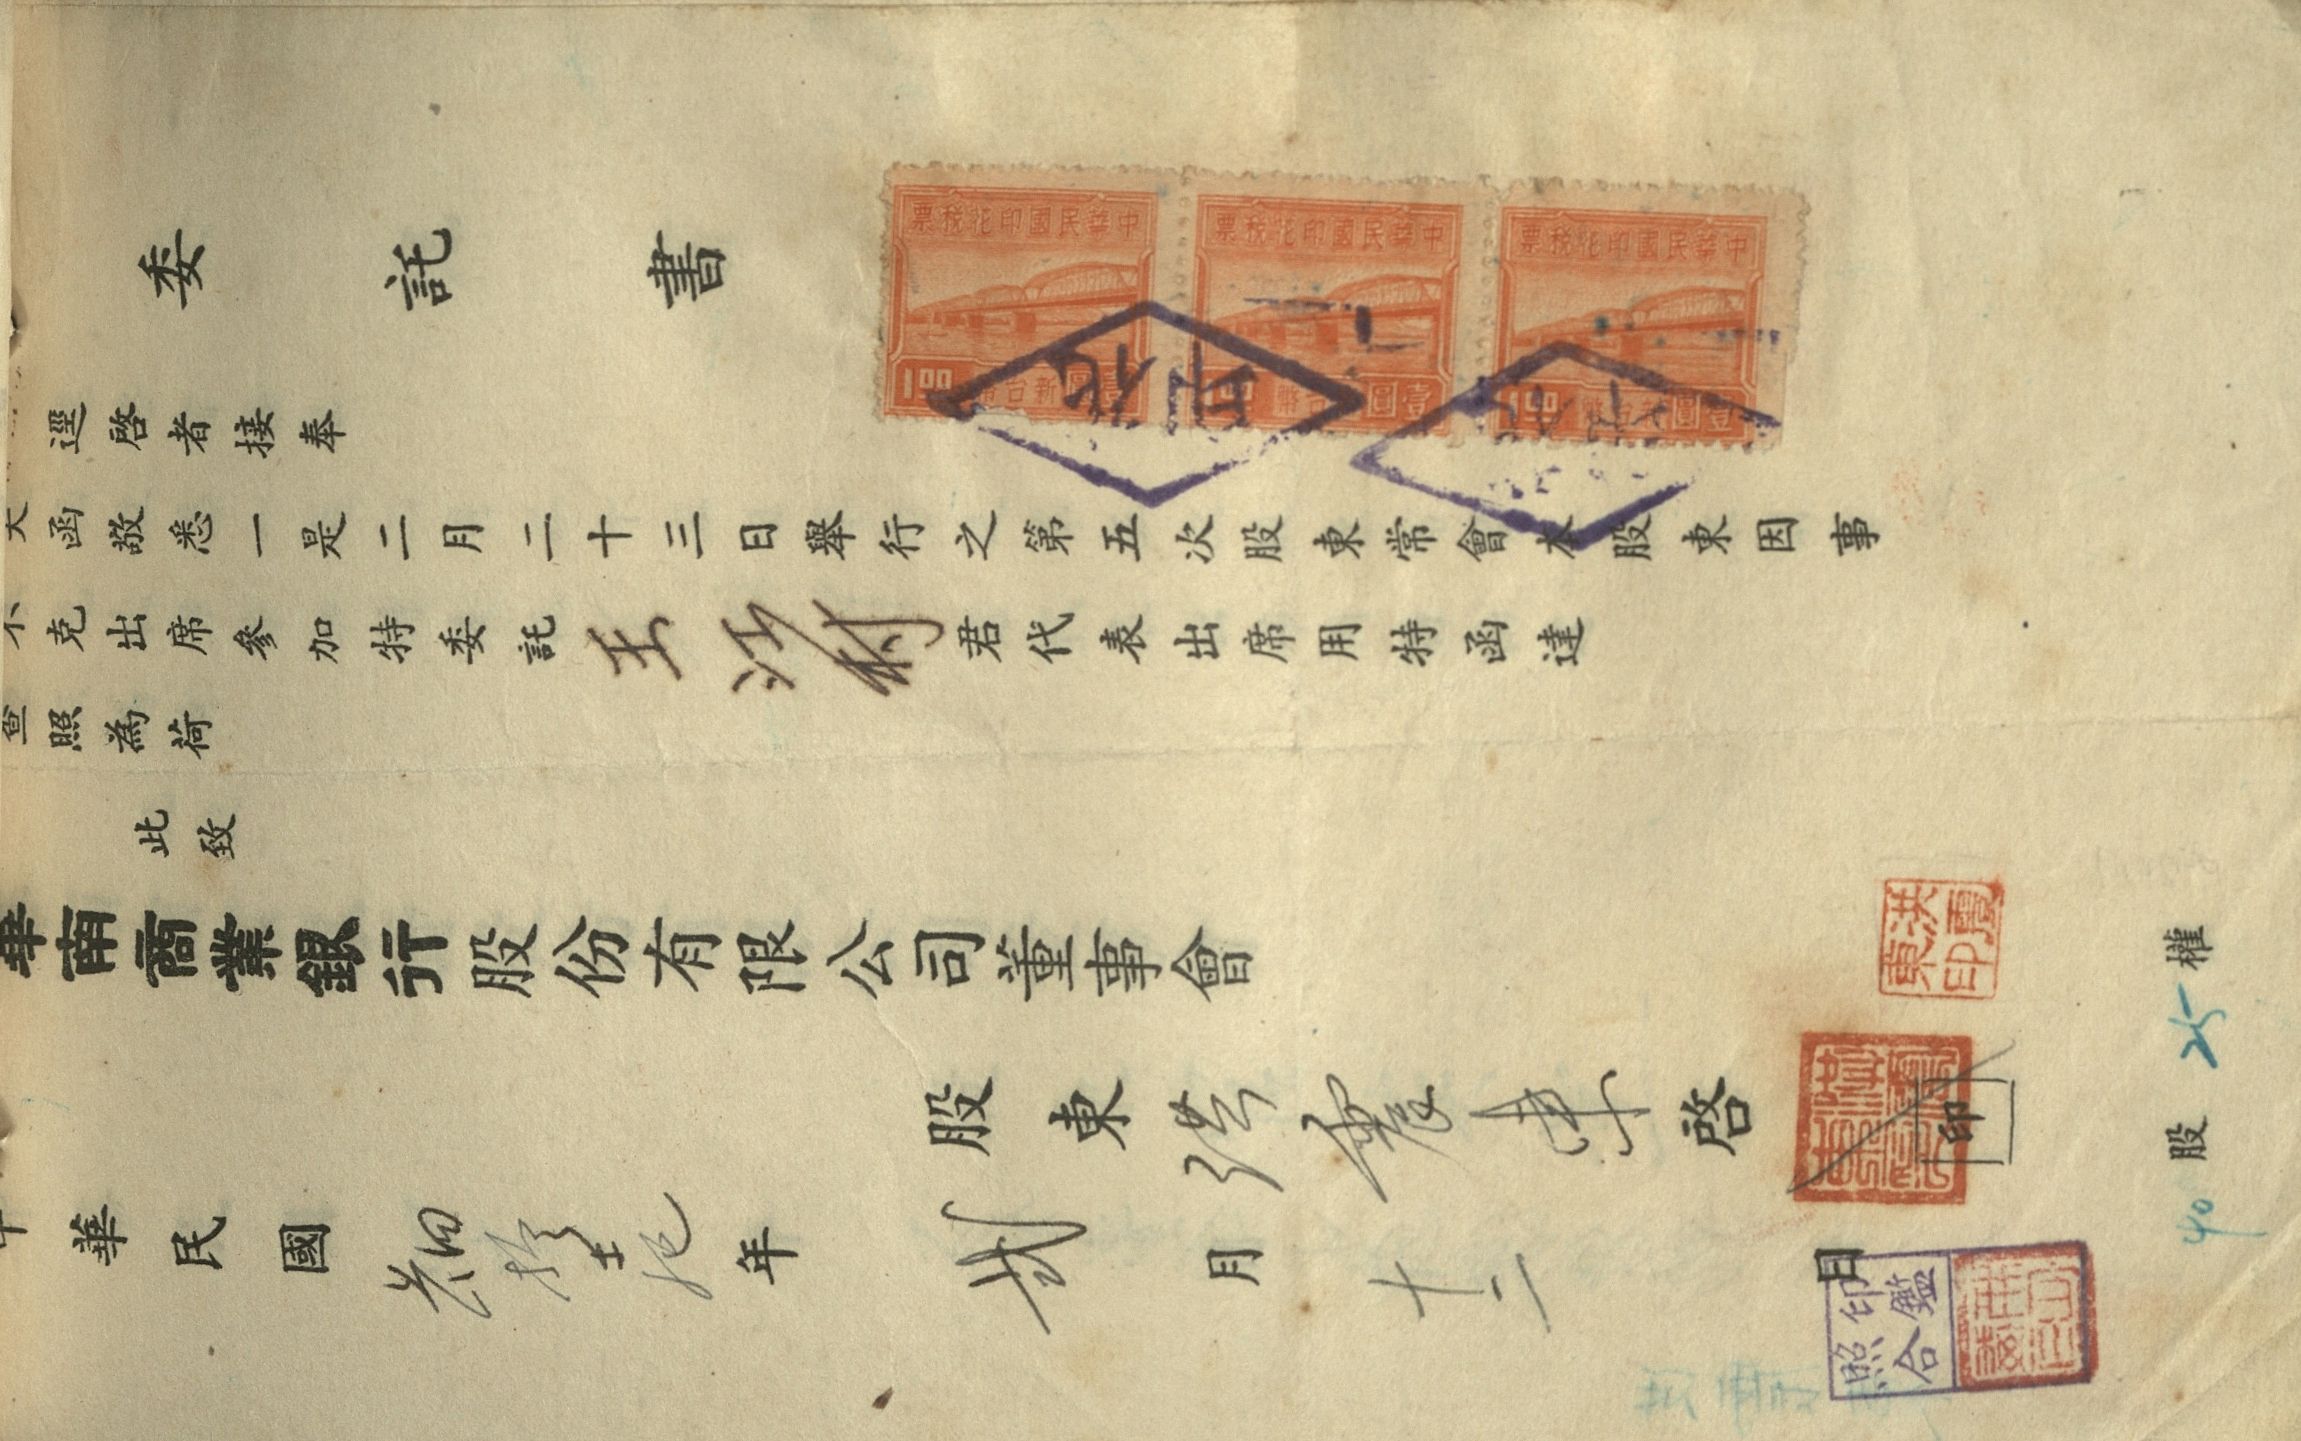 委託書
逕啓者接奉
大函敬悉一是二月二十三日舉行之第五次股東常會本股東因事
不克出席參加特委託王 君代表出席用特函達
查照為荷
此致
華南商業銀行股份有限公司董事會
股東洪 東啓
印
中華民國 年貳月十二日
中華民國印花稅票
1.00 新台幣壹圓
中華民國印花稅票
新台幣壹圓
中華民國印花稅票
1.00 新台幣壹圓
印花
印鑑
照合
40股 25權